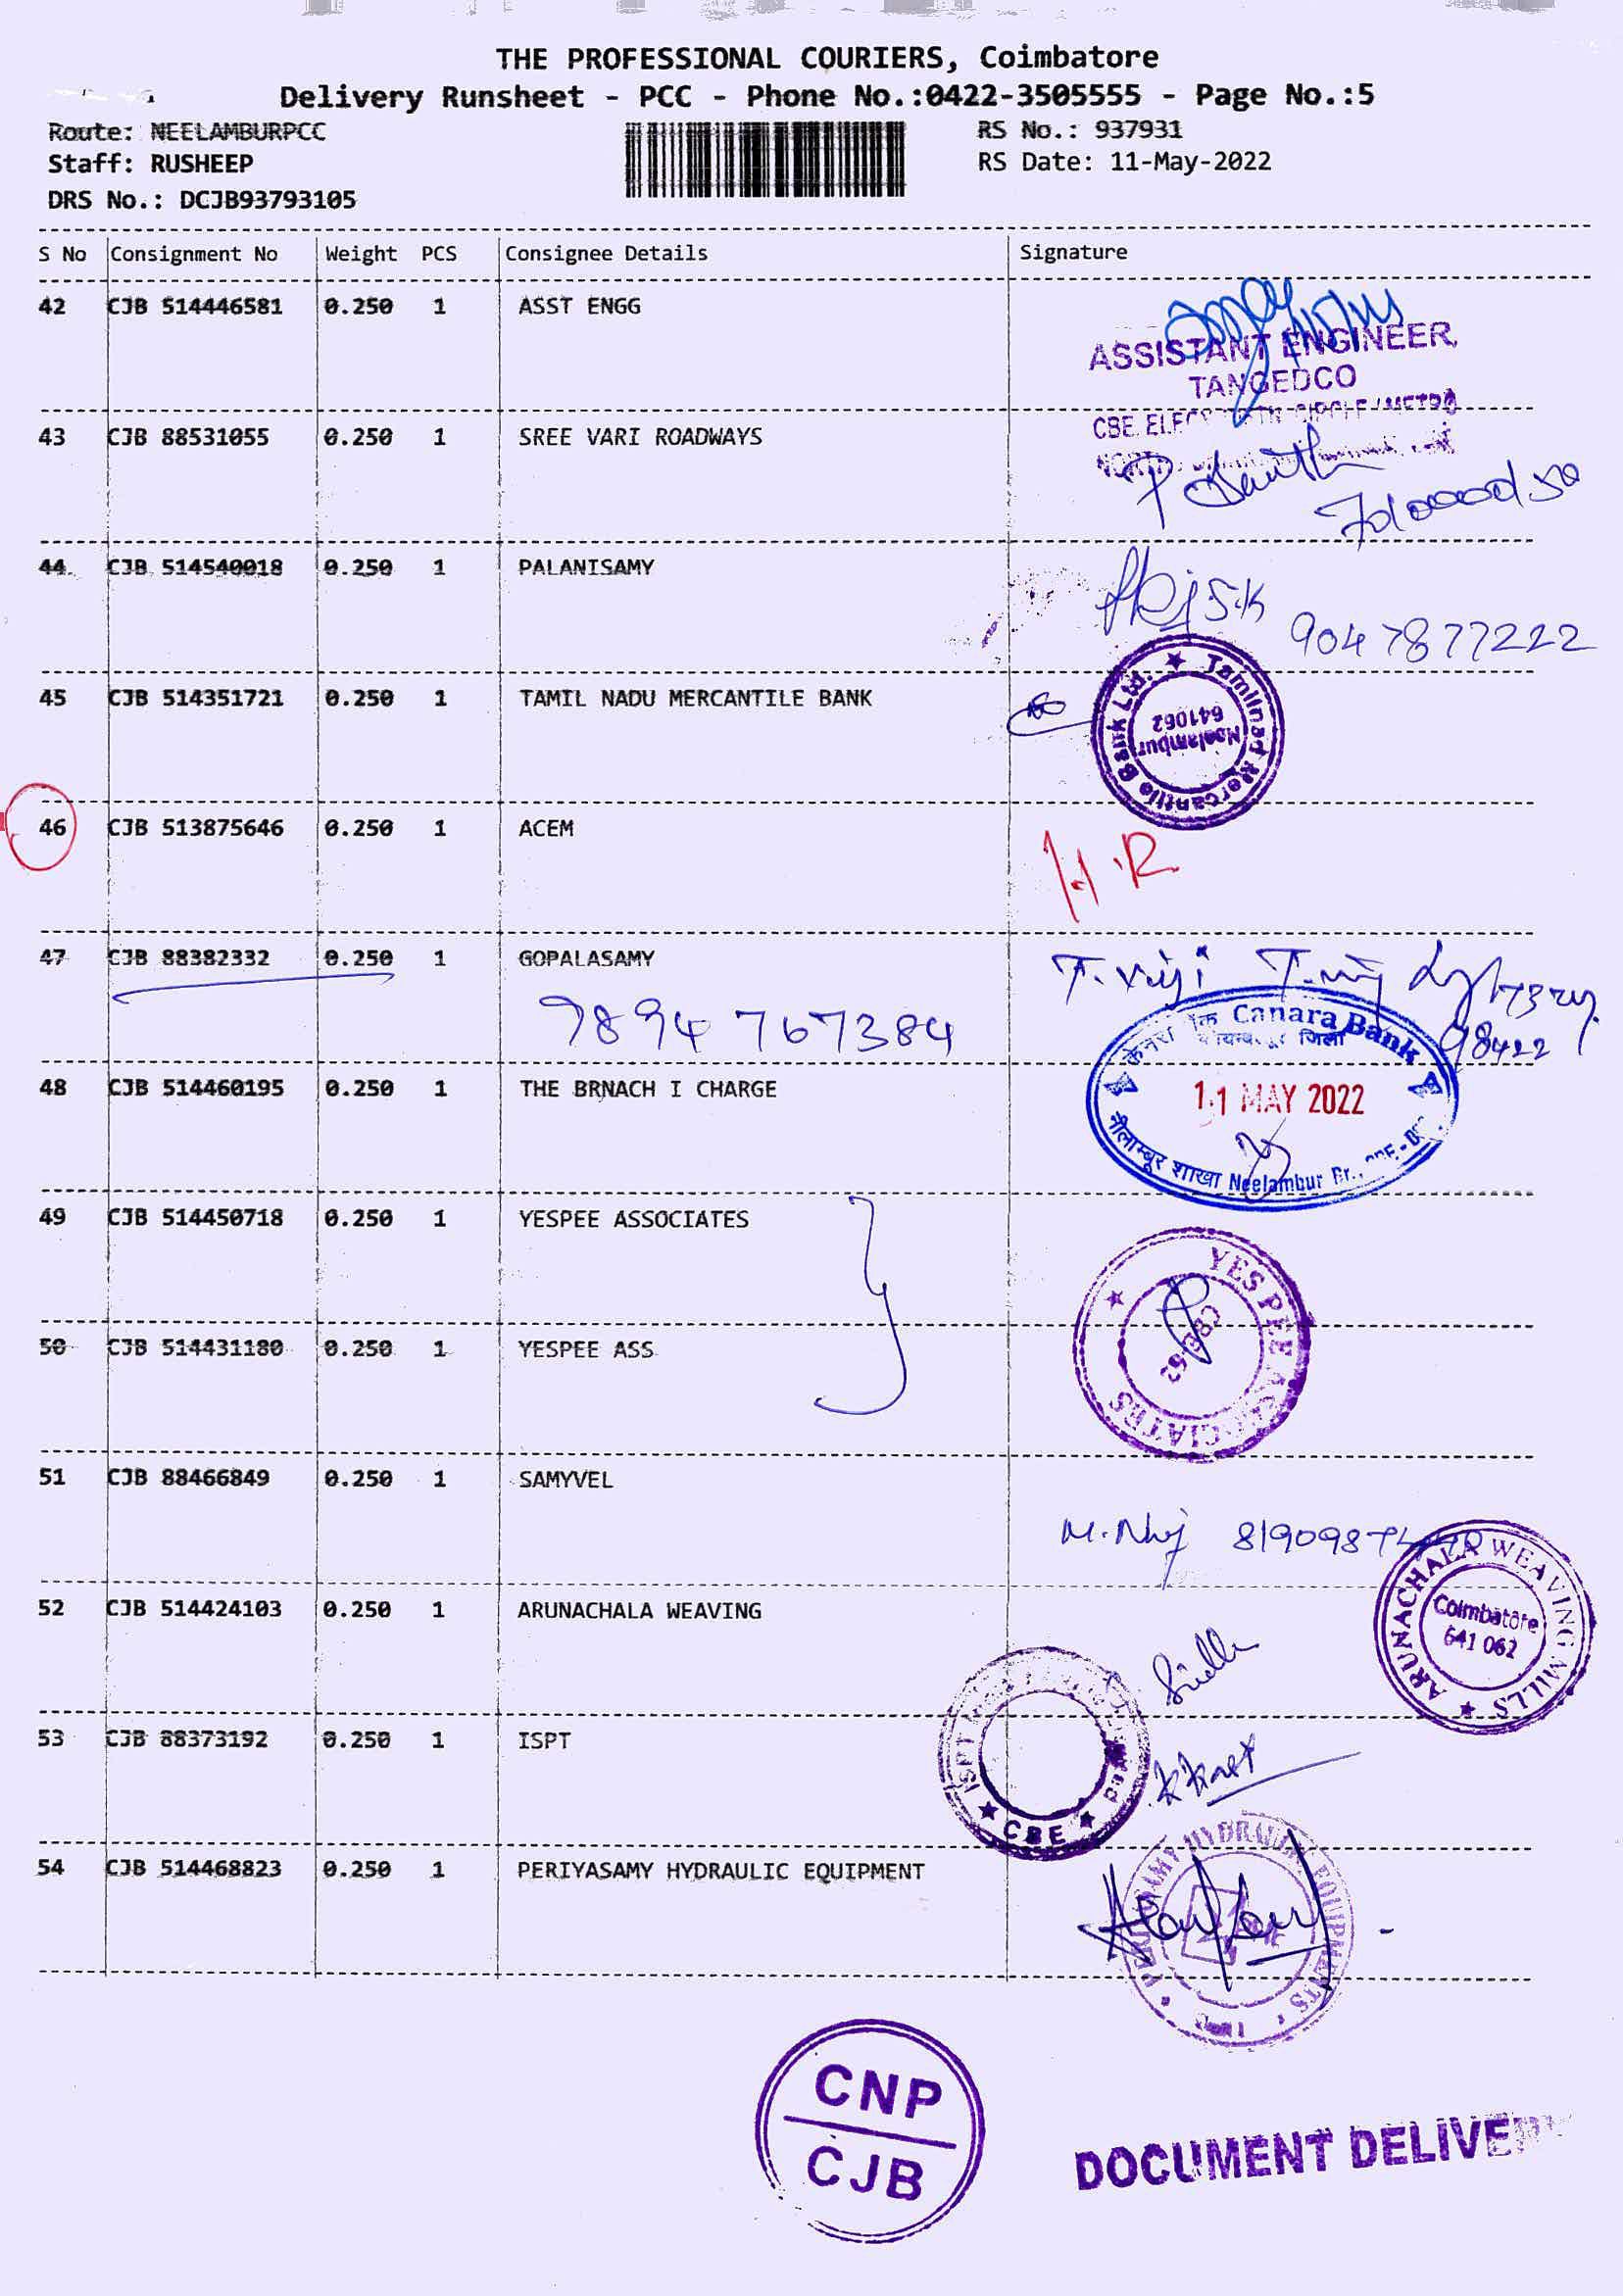 THE PROFESSIONAL COURIERS, Coimbatore
Delivery Runsheet - PCC - Phone No.:0422-3505555 - Page No.:5
Route: NEELAMBURPCC
RS No.: 937931
Staff: RUSHEEP
RS Date: 11-May-2022
DRS No.: DCJB93793105
S No Consignment No Weight PCS Consignee Details Signature
42 CJB 514446581 0.250 1 ASST ENGG
ASSISTANT ENGINEER,
TANGEDCO
43 CJB 88531055 0.250 1 SREE VARI ROADWAYS
44 CJB 514540018 0.250 1 PALANISAMY
9047877222
45 CJB 514351721 0.250 1 TAMIL NADU MERCANTILE BANK
Tamilnad Mercantile Bank Ltd. ★
Neelambur
641062
46 CJB 513875646 0.250 1 ACEM
H.R
47 CJB 88382332 0.250 1 GOPALASAMY
T. Viji
7894767384
98422
48 CJB 514460195 0.250 1 THE BRNACH I CHARGE
केनरा Canara Bank
जिला
11 MAY 2022
नीलाम्बूर शाखा Neelambur Br.,
49 CJB 514450718 0.250 1 YESPEE ASSOCIATES
YESPEE ASSOCIATES ★
50 CJB 514431180 0.250 1 YESPEE ASS
51 CJB 88466849 0.250 1 SAMYVEL
52 CJB 514424103 0.250 1 ARUNACHALA WEAVING
ARUNACHALA WEAVING MILLS ★
Coimbatore
641 062
53 CJB 88373192 0.250 1 ISPT
ISPT
★ CBE ★
54 CJB 514468823 0.250 1 PERIYASAMY HYDRAULIC EQUIPMENT
PERIYASAMY HYDRAULIC EQUIPMENTS
CNP
CJB
DOCUMENT DELIVERY